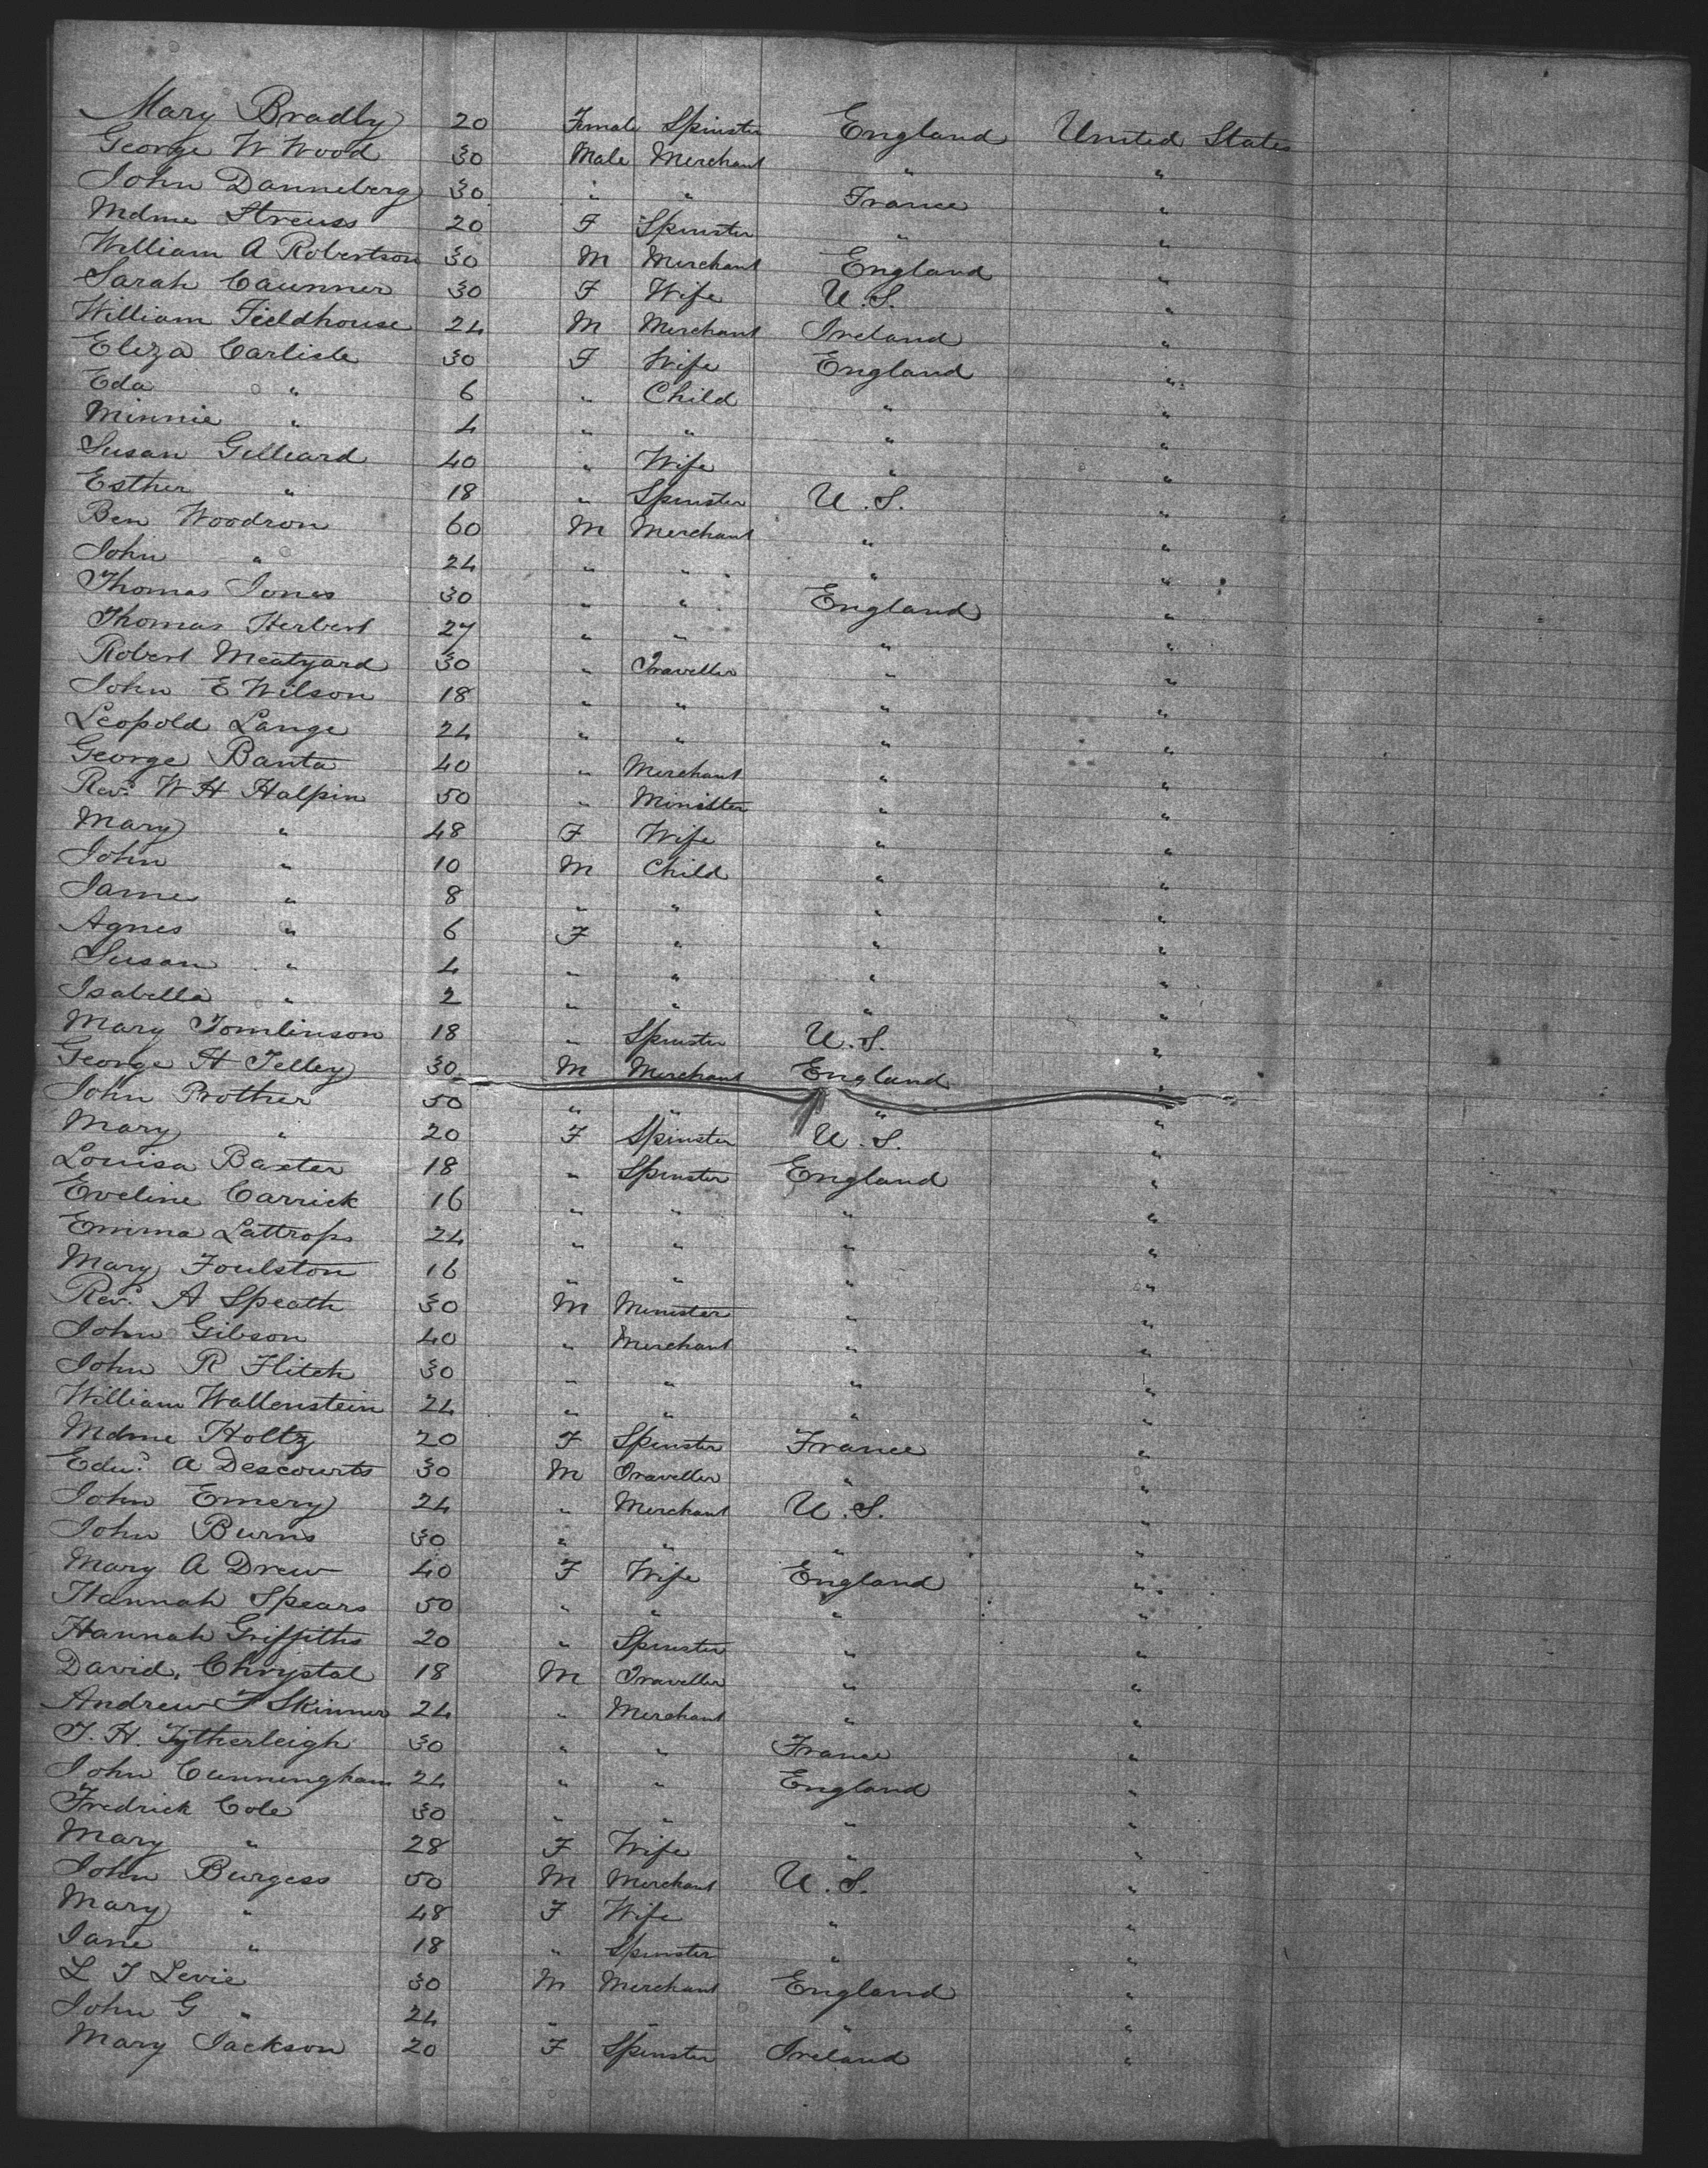 Mary Bradly 20 Female Spinster England United States
George W Wood 30 Male Merchant " "
John Danneberg 30 " " France "
Mdme Streuss 20 F Spinster " "
William A Robertson 30 M Merchant England "
Sarah Caunner 30 F Wife U.S. "
William Fieldhouse 24 M Merchant Ireland "
Eliza Carlisle 30 F Wife England "
Eda " 6 " Child " "
Minnie " 4 " " " "
Susan Gilleard 40 " Wife " "
Esther " 18 " Spinster U.S. "
Ben Woodron 60 M Merchant " "
John " 24 " " " "
Thomas Jones 30 " " England "
Thomas Herbert 27 " " " "
Robert Meatyard 30 " Traveller " "
John E Wilson 18 " " " "
Leopold Lange 24 " " " "
George Banta 40 " Merchant " "
Rev. W H Halpin 50 " Minister " "
Mary " 48 F Wife " "
John " 10 M Child " "
James " 8 " " " "
Agnes " 6 F " " "
Susan " 4 " " " "
Isabella " 2 " " " "
Mary Tomlinson 18 " Spinster U.S. "
George H Telley 30 M Merchant England "
John Prother 50 " " " "
Mary " 20 F Spinster U.S. "
Louisa Baxter 18 " Spinster England "
Eveline Carrick 16 " " " "
Emma Lattrops 24 " " " "
Mary Foulston 16 " " " "
Rev. A Speath 30 M Minister " "
John Gibson 40 " Merchant " "
John R Flitch 30 " " " "
William Wallenstein 24 " " " "
Mdme Holtz 20 F Spinster France "
Edw. A Descourts 30 M Traveller " "
John Emery 24 " Merchant U.S. "
John Burns 30 " " " "
Mary A Drew 40 F Wife England "
Hannah Spears 50 " " " "
Hannah Griffiths 20 " Spinster " "
David Chrystal 18 M Traveller " "
Andrew F Skinner 24 " Merchant " "
T. H. Tytherleigh 30 " " France "
John Cunningham 24 " " England "
Fredrick Cole 30 " " " "
Mary " 28 F Wife " "
John Burgess 50 M Merchant U.S. "
Mary " 48 F Wife " "
Jane " 18 " Spinster " "
L T Levie 30 M Merchant England "
John G " 24 " " " "
Mary Jackson 20 F Spinster Ireland "